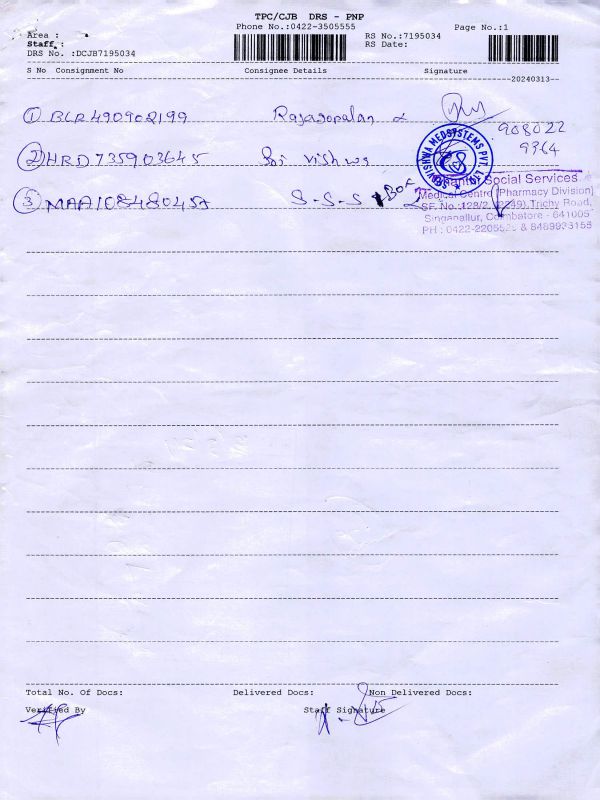 TPC/CJB DRS - PNP
Phone No.:0422-3505555 Page No.:1
Area : RS No.:7195034
Staff : RS Date:
DRS No. :DCJB7195034
S No Consignment No Consignee Details Signature
20240313
① BLR490902199 Rajagopalan
908022
9364
② HRD735903645 Sri Vishwa
SRI VISHWA MEDSYSTEMS PVT. LTD.
③ MAA108480457 S-S-S 1 Box
Social Services
Medical Centre (Pharmacy Division)
SF. No.:128/2, Trichy Road,
Singanallur, Coimbatore - 641005
PH : 0422- & 8489933155
Total No. Of Docs: Delivered Docs: Non Delivered Docs:
Verified By Staff Signature